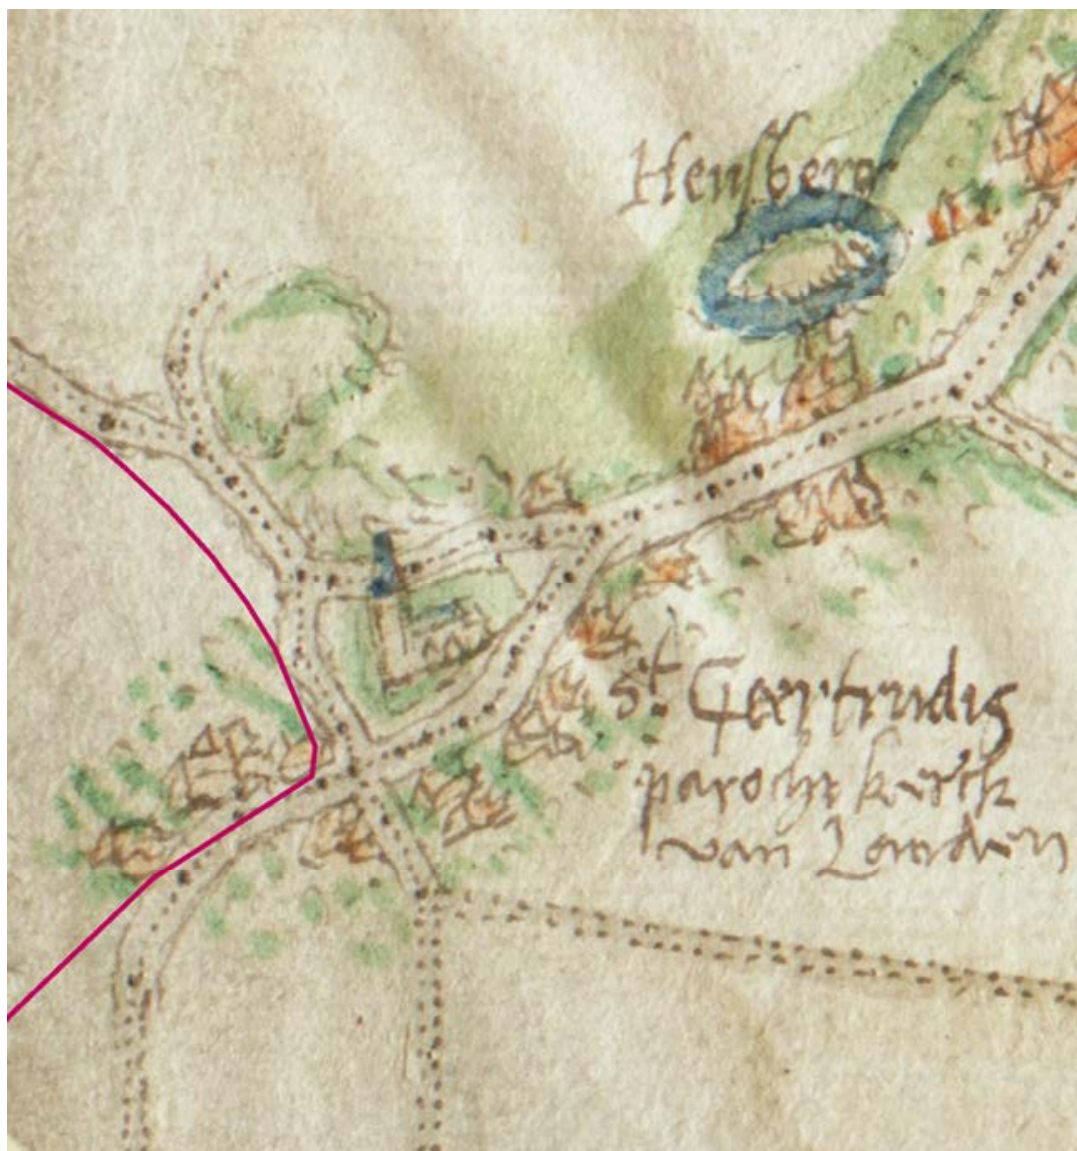 Hensberg
St. Geertrudis
parochi kerck
van Landen